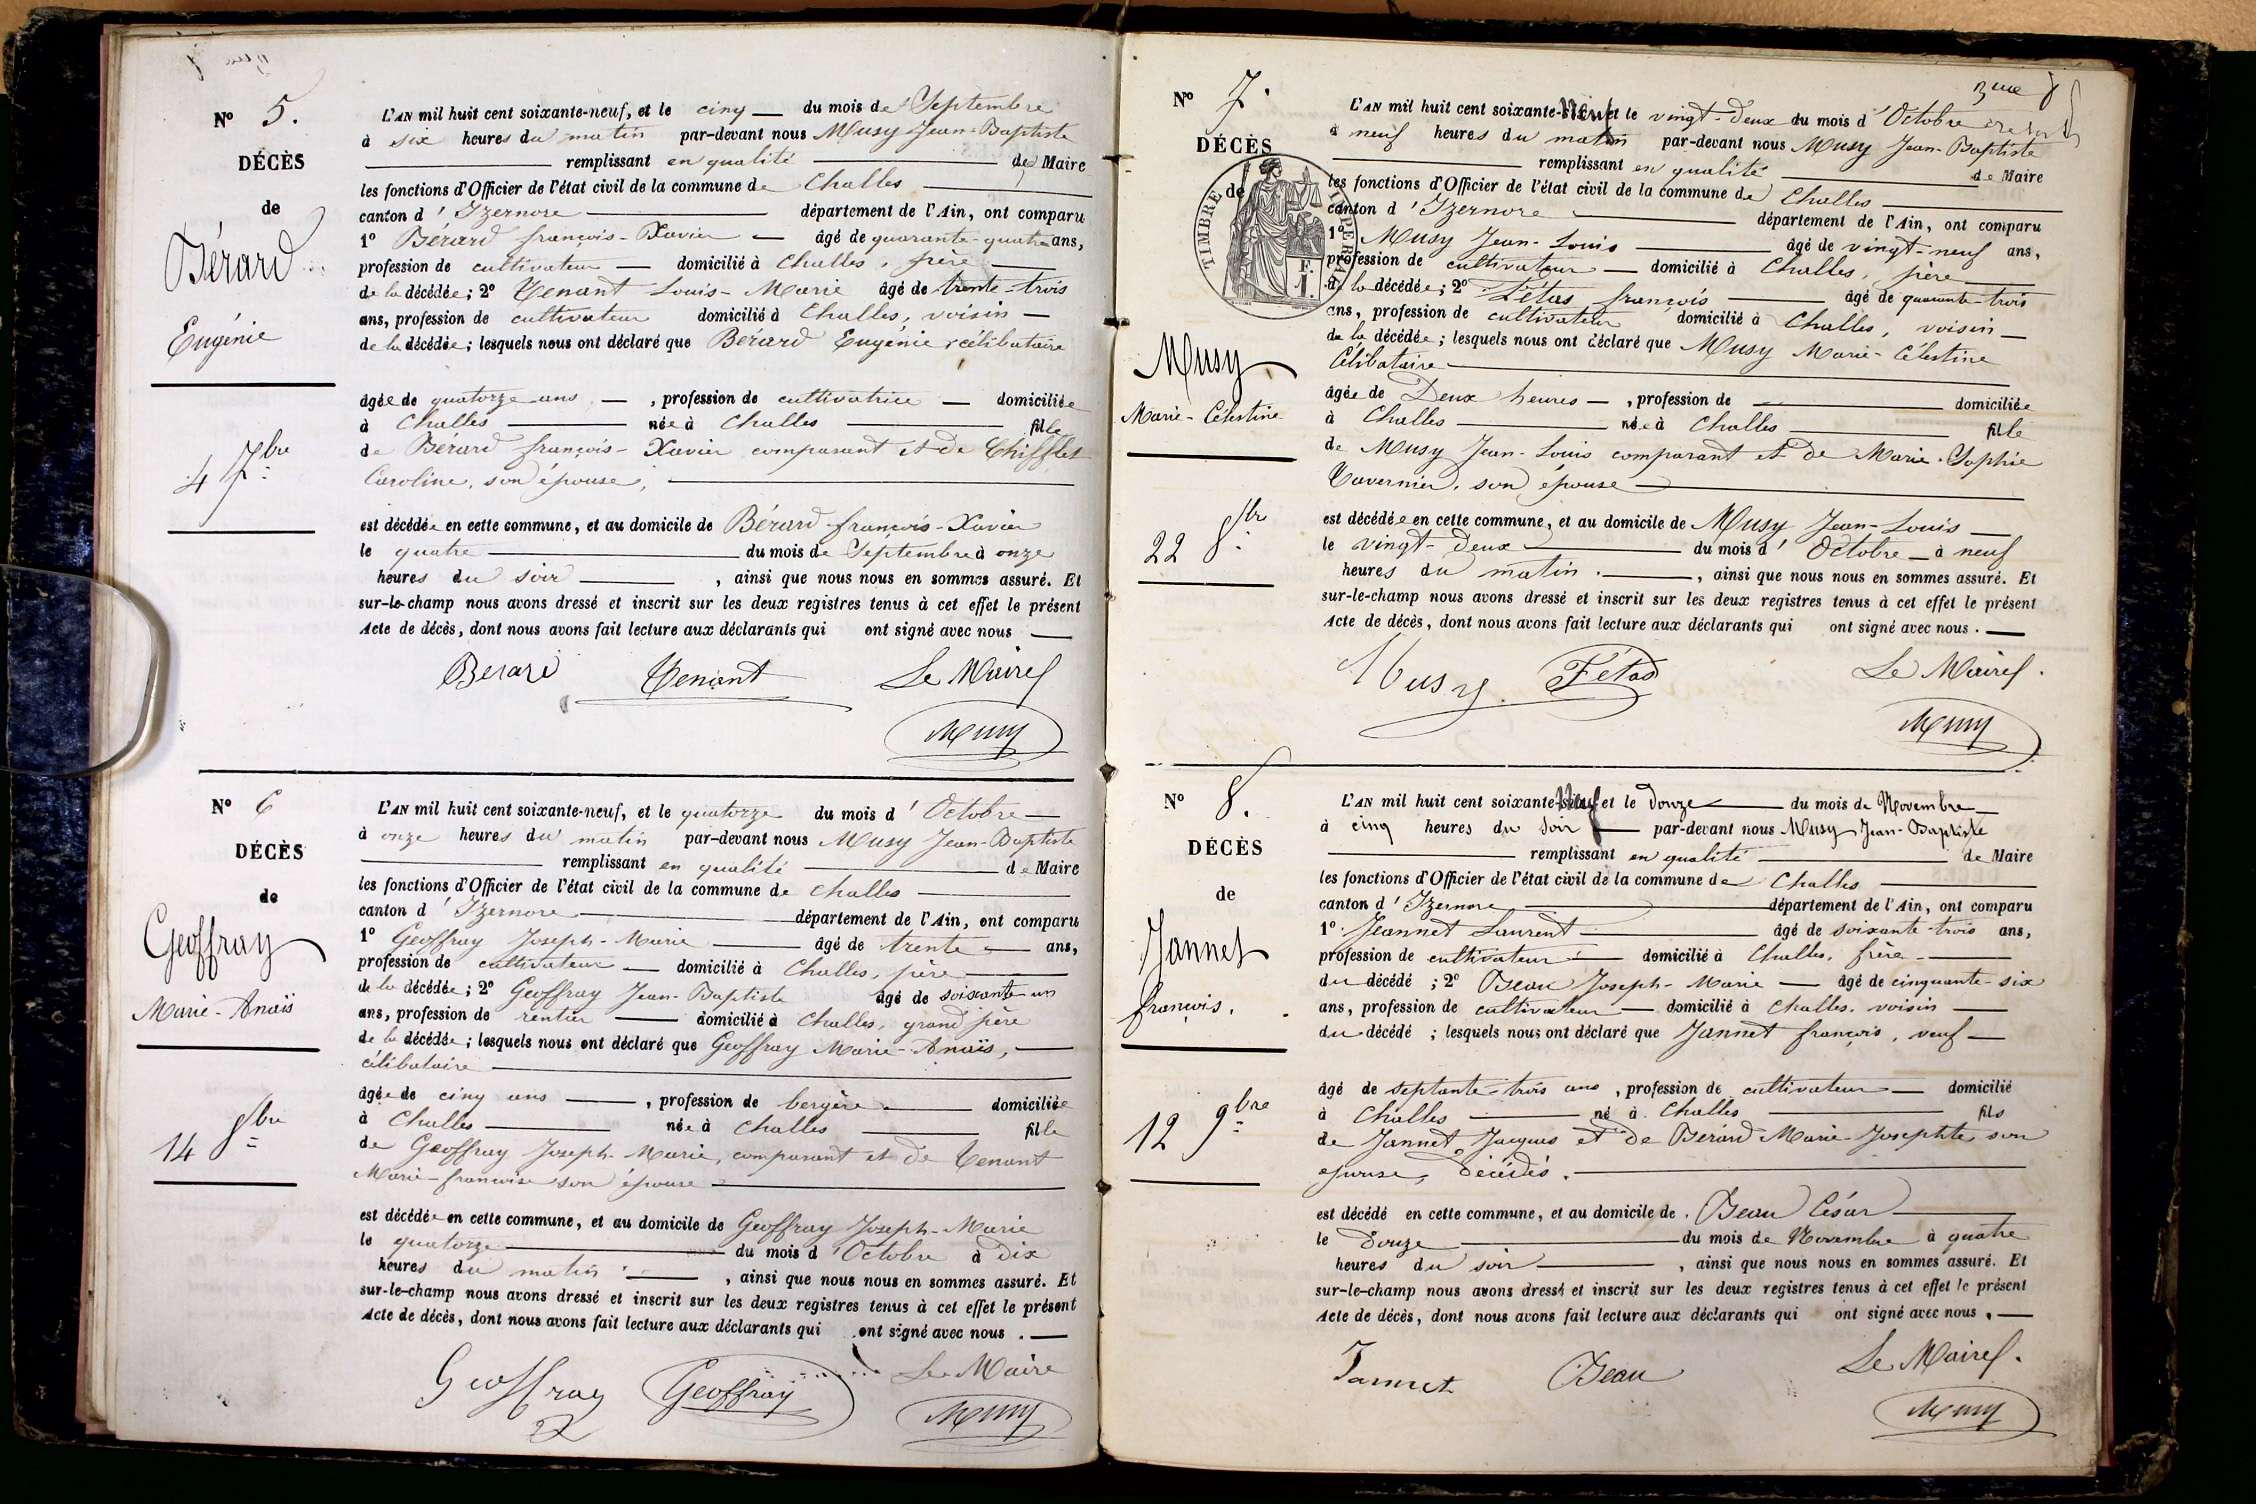 Nº 5.
DÉCÈS
de
Bérard
Eugénie
4 7bre
L'AN mil huit cent soixante-neuf, et le cinq du mois de Septembre
à six heures du matin par-devant nous Musy Jean-Baptiste
remplissant en qualité de Maire
les fonctions d'Officier de l'état civil de la commune de Challes
canton d'Izernore département de l'Ain, ont comparu
1º Bérard françois-Xavier âgé de quarante-quatre ans,
profession de cultivateur domicilié à Challes, père
de la décédée; 2º Tenant Louis-Marie âgé de trente-trois
ans, profession de cultivateur domicilié à Challes, voisin
de la décédée; lesquels nous ont déclaré que Bérard Eugénie célibataire
âgée de quatorze ans, profession de cultivatrice domiciliée
à Challes née à Challes fille
de Bérard françois-Xavier comparant et de Chifflet
Caroline, son épouse,
est décédée en cette commune, et au domicile de Bérard françois-Xavier
le quatre du mois de Septembre à onze
heures du soir, ainsi que nous nous en sommes assuré. Et
sur-le-champ nous avons dressé et inscrit sur les deux registres tenus à cet effet le présent
Acte de décès, dont nous avons fait lecture aux déclarants qui ont signé avec nous
Berard Tenant Le Maire
Musy
Nº 6
DÉCÈS
de
Geoffray
Marie-Anaïs
14 8bre
L'AN mil huit cent soixante-neuf, et le quatorze du mois d'Octobre
à onze heures du matin par-devant nous Musy Jean-Baptiste
remplissant en qualité de Maire
les fonctions d'Officier de l'état civil de la commune de Challes
canton d'Izernore département de l'Ain, ont comparu
1º Geoffray Joseph-Marie âgé de trente ans,
profession de cultivateur domicilié à Challes, père
de la décédée; 2º Geoffray Jean-Baptiste âgé de soixante-un
ans, profession de rentier domicilié à Challes, grand père
de la décédée; lesquels nous ont déclaré que Geoffray Marie-Anaïs,
célibataire
âgée de cinq ans, profession de bergère domiciliée
à Challes née à Challes fille
de Geoffray Joseph-Marie, comparant et de Tenant
Marie-françoise son épouse
est décédée en cette commune, et au domicile de Geoffray Joseph-Marie
le quatorze du mois d'Octobre à dix
heures du matin, ainsi que nous nous en sommes assuré. Et
sur-le-champ nous avons dressé et inscrit sur les deux registres tenus à cet effet le présent
Acte de décès, dont nous avons fait lecture aux déclarants qui ont signé avec nous.
Geoffray Geoffray Le Maire
Musy
Nº 7.
DÉCÈS
de
TIMBRE IMPERIAL
F.
1.
Musy
Marie-Célestine
22 8bre
L'AN mil huit cent soixante-neuf et le vingt-deux du mois d'Octobre
à neuf heures du matin par-devant nous Musy Jean-Baptiste
remplissant en qualité de Maire
les fonctions d'Officier de l'état civil de la commune de Challes
canton d'Izernore département de l'Ain, ont comparu
1º Musy Jean-Louis âgé de vingt-neuf ans,
profession de cultivateur domicilié à Challes, père
de la décédée; 2º Fétas françois âgé de quarante-trois
ans, profession de cultivateur domicilié à Challes, voisin
de la décédée; lesquels nous ont déclaré que Musy Marie-Célestine
Célibataire
âgée de Deux heures, profession de domiciliée
à Challes née à Challes fille
de Musy Jean-Louis comparant et de Marie-Sophie
Tavernier, son épouse
est décédée en cette commune, et au domicile de Musy Jean-Louis
le vingt-deux du mois d'Octobre à neuf
heures du matin, ainsi que nous nous en sommes assuré. Et
sur-le-champ nous avons dressé et inscrit sur les deux registres tenus à cet effet le présent
Acte de décès, dont nous avons fait lecture aux déclarants qui ont signé avec nous.
Musy. Fétas Le Maire.
Musy
Nº 8.
DÉCÈS
de
Jannet
françois.
12 9bre
L'AN mil huit cent soixante-neuf et le douze du mois de Novembre
à cinq heures du soir par-devant nous Musy Jean-Baptiste
remplissant en qualité de Maire
les fonctions d'Officier de l'état civil de la commune de Challes
canton d'Izernore département de l'Ain, ont comparu
1º Jeannet Laurent âgé de soixante-trois ans,
profession de cultivateur domicilié à Challes, frère
du décédé; 2º Beau Joseph-Marie âgé de cinquante-six
ans, profession de cultivateur domicilié à Challes, voisin
du décédé; lesquels nous ont déclaré que Jannet françois, veuf
âgé de septante-trois ans, profession de cultivateur domicilié
à Challes né à Challes fils
de Jannet Jacques et de Bérard Marie-Josephte, son
épouse, décédés.
est décédé en cette commune, et au domicile de Beau César
le douze du mois de Novembre à quatre
heures du soir, ainsi que nous nous en sommes assuré. Et
sur-le-champ nous avons dressé et inscrit sur les deux registres tenus à cet effet le présent
Acte de décès, dont nous avons fait lecture aux déclarants qui ont signé avec nous.
Jannet Beau Le Maire.
Musy